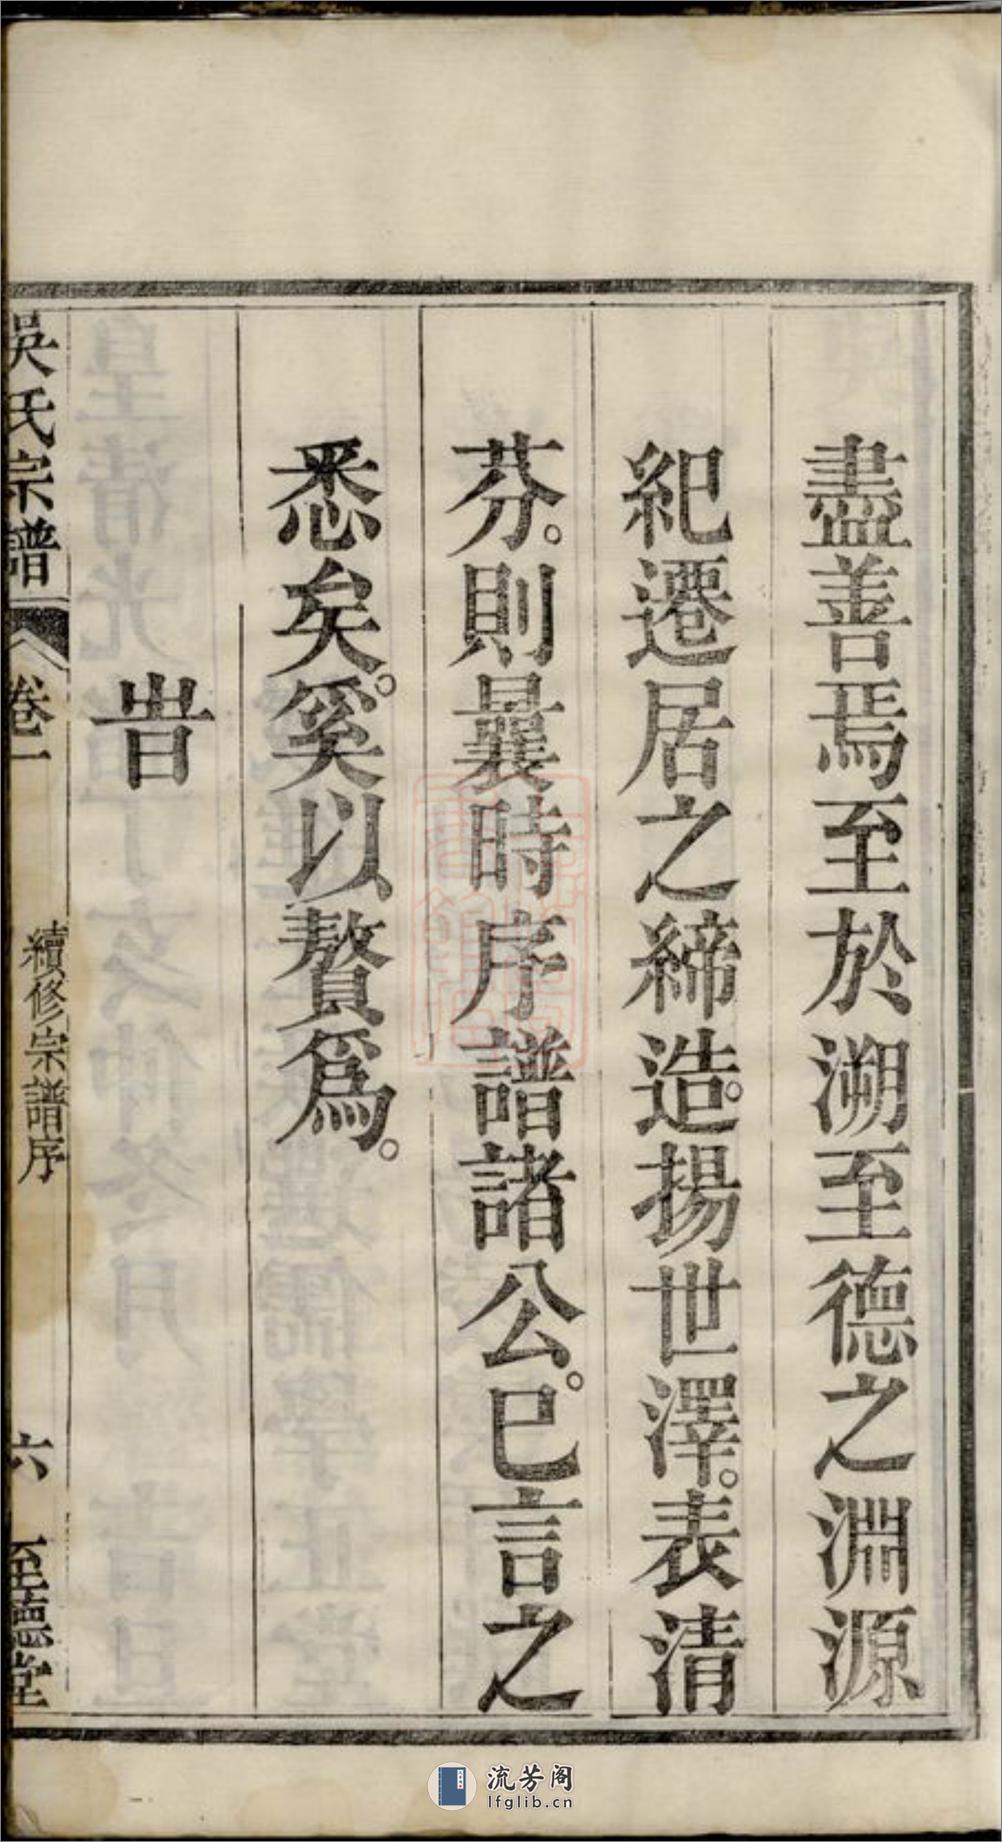 盡善焉至於溯至德之淵源
紀遷居之締造。揚世澤。表清
芬。則曩時序譜諸公。已言之
悉矣。奚以贅爲。
旹
吳氏宗譜 卷一 續修宗譜序 六 至德堂
流芳阁
lfglib.cn